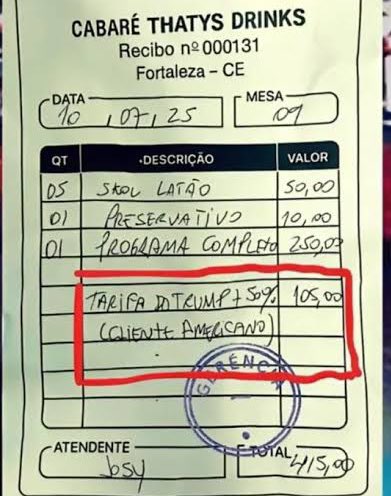 CABARÉ THATYS DRINKS
Recibo nº 000131
Fortaleza – CE
DATA
10 , 07 , 25
MESA
09
QT
DESCRIÇÃO
VALOR
05 SKOL LATÃO 50,00
01 PRESERVATIVO 10,00
01 PROGRAMA COMPLETO 250,00
TARIFA DO TRUMP + 50% 105,00
(CLIENTE AMERICANO)
GERÊNCIA
ATENDENTE
Josy
TOTAL
415,00